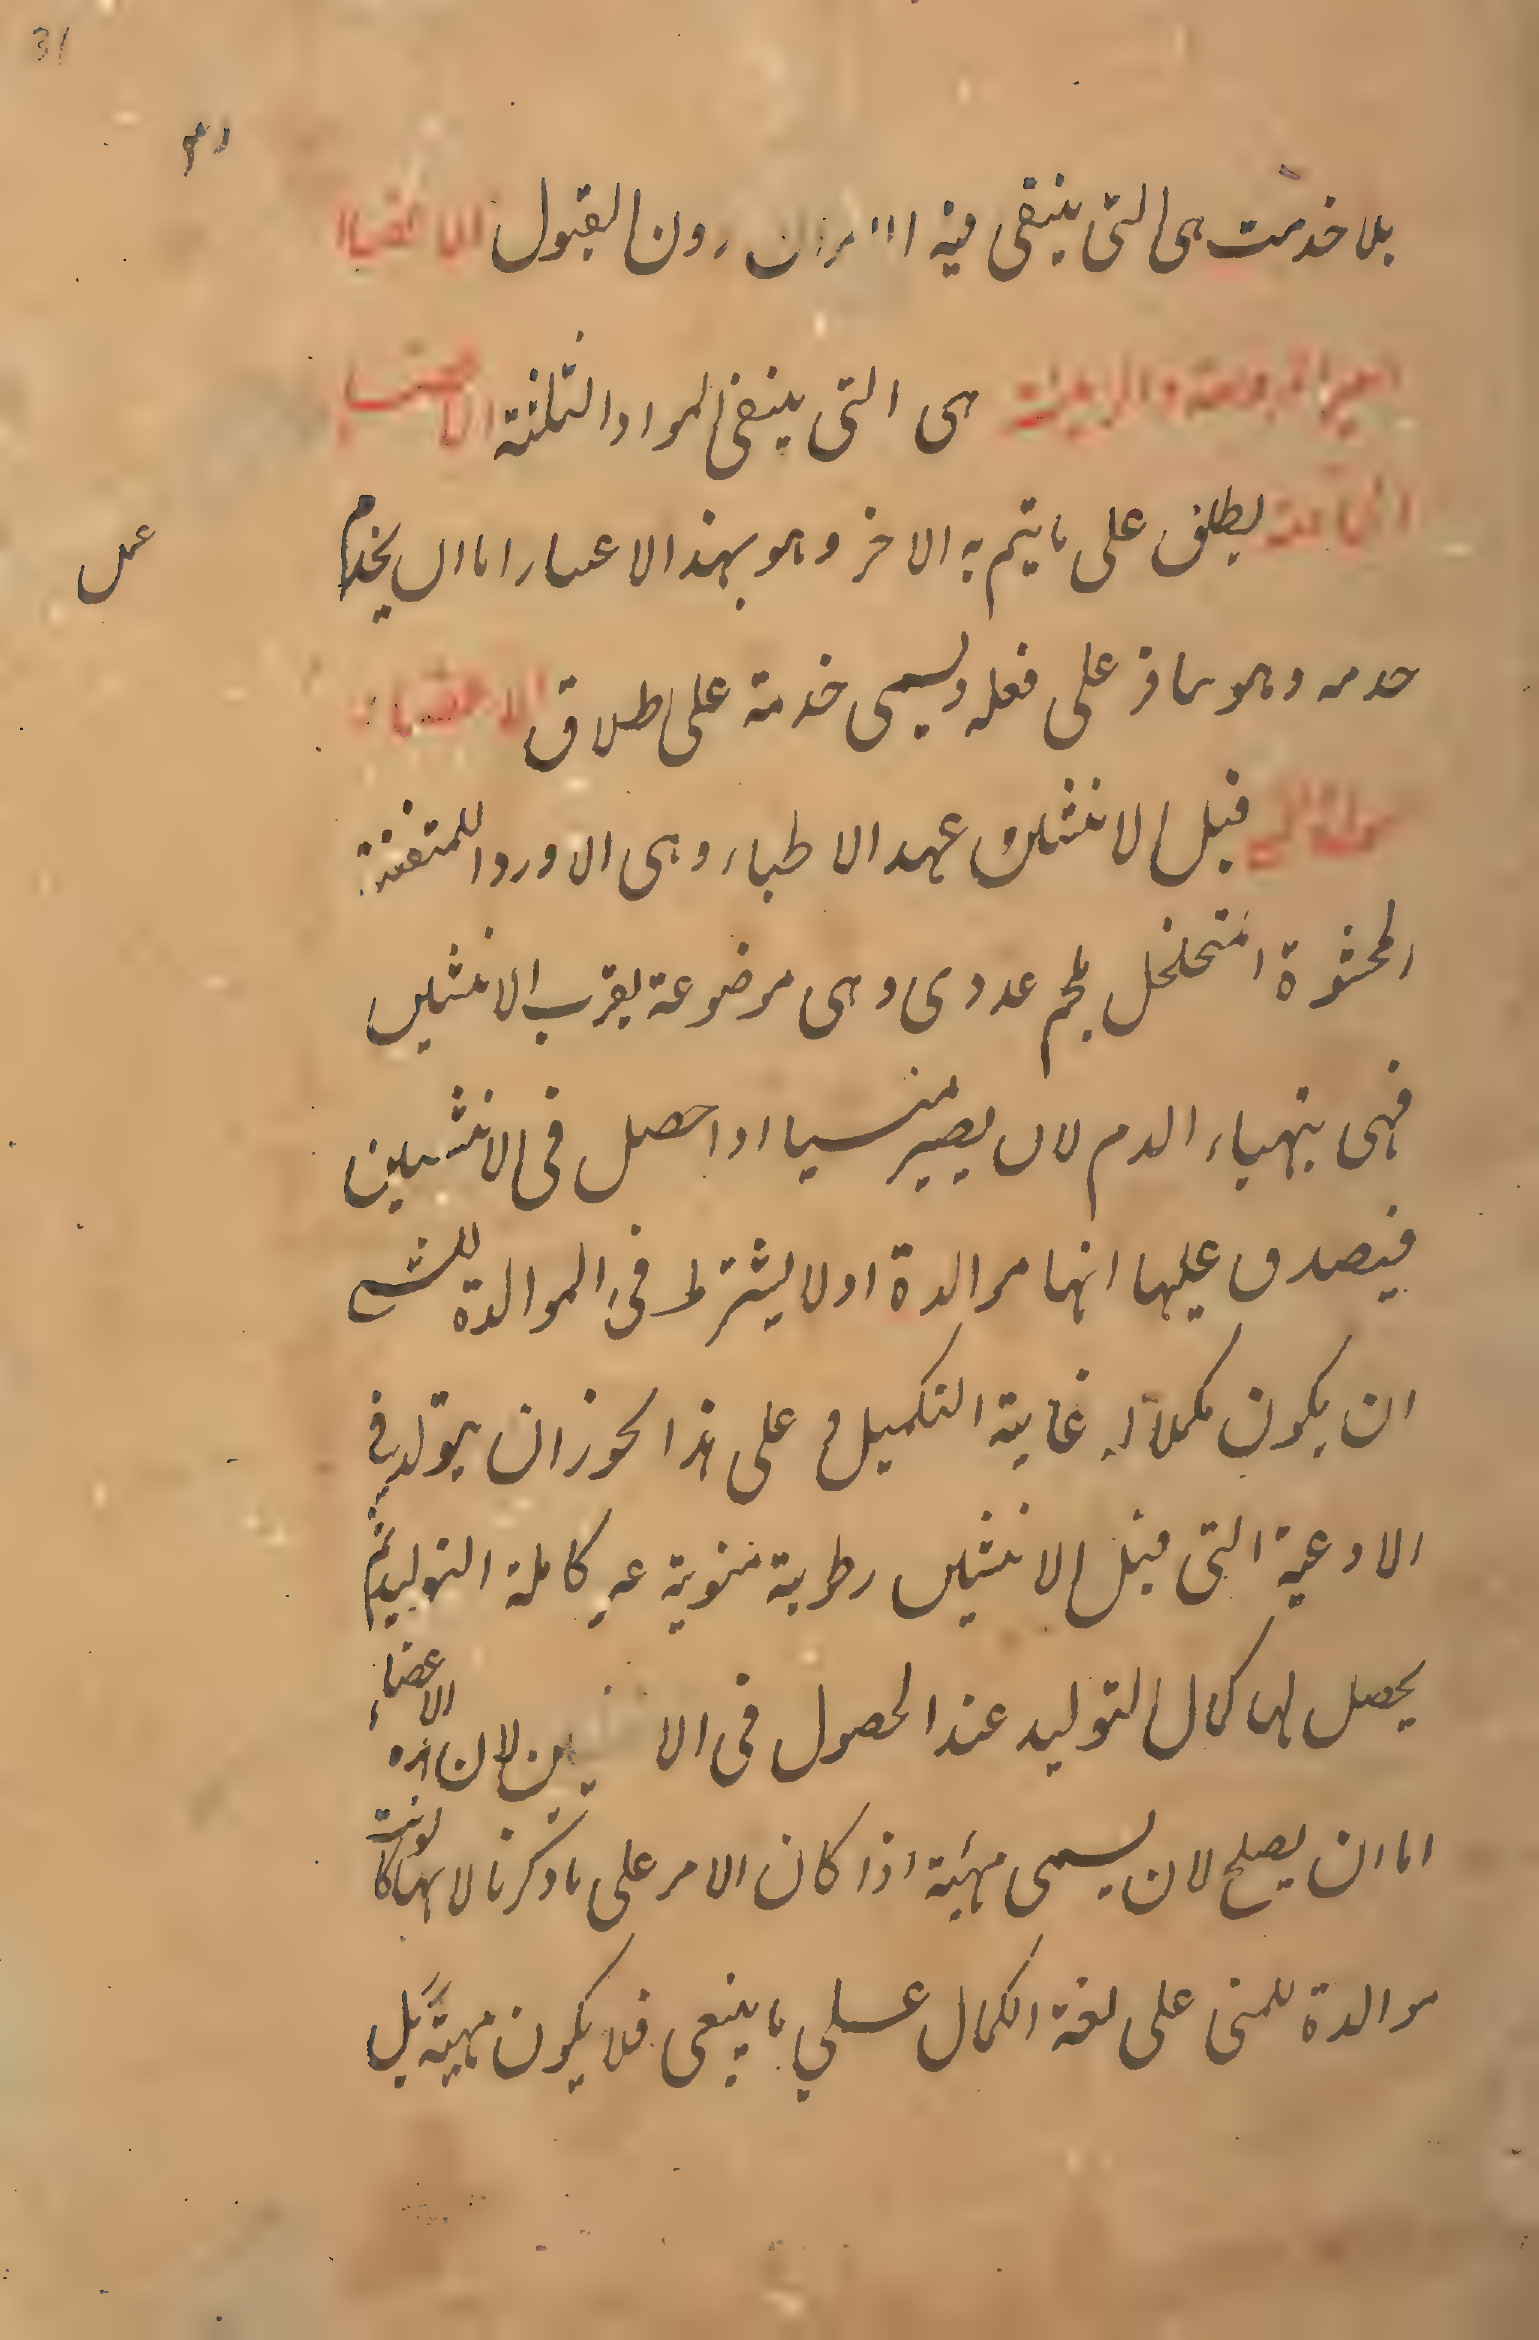 31
بلا خدمت هى التى ينبقى فيه دون القبول الاعضاء
هى التى ينفى المواد الثلثة
يطلق على ما يتم به الاخر وهو بهذا الاعتبار اما ان يخدم
عل
خدمه وهو متاخر على فعله ويسمى خدمة على طلاق الاعضاء
قبل الانثيين عهد الاطباء وهى الاوردا للمتفننة
المحشوة المتخلخل بلحم غددى وهى موضوعة بقرب الانثيين
فهى بتهياء الدم لان يصير منسيا اذا حصل فى الانثيين
فيصدق عليها انها موالدة اولا يشترط فى الموالدة للشئ
ان يكون مكملا له غاية التكميل و على هذا يجوز ان يتولد فى
الاوعية التى قبل الانثيين رطوبة منوية غير كاملة التوليد ثم
يحصل لها كمال التوليد عند الحصول فى الا ين لان هذه الاعضاء
اما ان يصلح لان يسمى مهيئة اذا كان الامر على ما ذكرنا لانها لو كانت
موالدة للمنى على لغة الكمال على ما ينبغى فلا يكون مهيئة بل